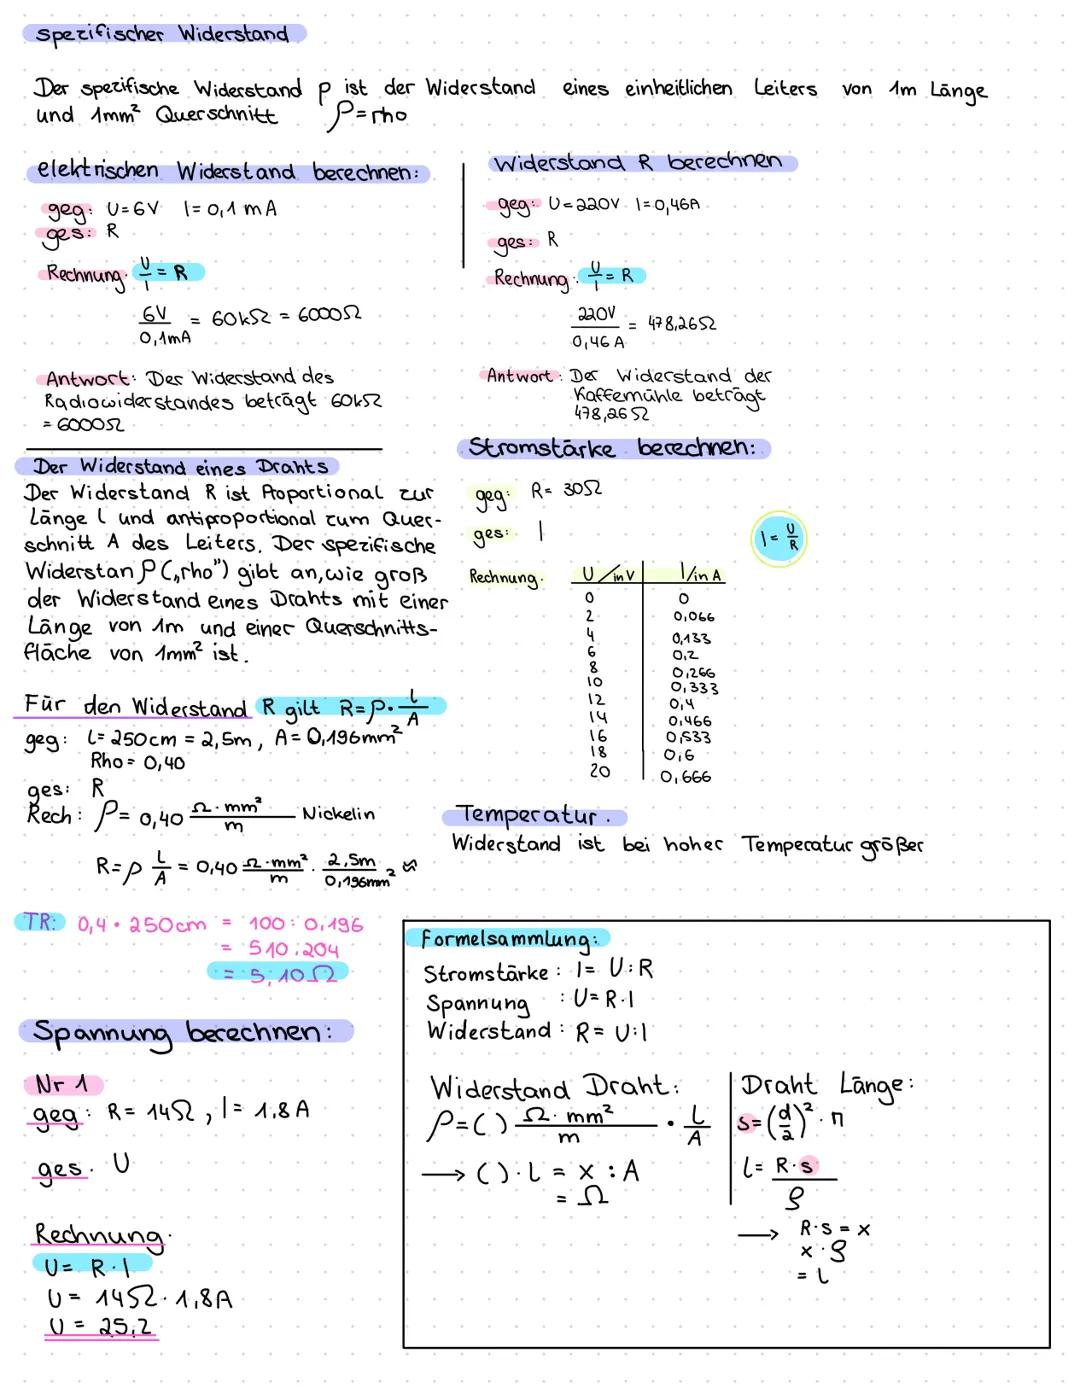 spezifischer Widerstand
Der spezifische Widerstand ρ ist der Widerstand eines einheitlichen Leiters von 1m Länge
und 1mm² Querschnitt ρ=rho
elektrischen Widerstand berechnen:
geg: U=6V I=0,1mA
ges: R
Rechnung: U/I = R
6V/0,1mA = 60kΩ = 6000Ω
Antwort: Der Widerstand des
Radiowiderstandes beträgt 60kΩ
= 6000Ω
Widerstand R berechnen
geg: U=220V I=0,46A
ges: R
Rechnung: U/I = R
220V/0,46A = 478,26Ω
Antwort: Der Widerstand der
Kaffemühle beträgt
478,26Ω
Der Widerstand eines Drahts
Der Widerstand R ist Proportional zur
Länge l und antiproportional zum Quer-
schnitt A des Leiters. Der spezifische
Widerstan ρ („rho") gibt an, wie groß
der Widerstand eines Drahts mit einer
Länge von 1m und einer Querschnitts-
fläche von 1mm² ist.
Für den Widerstand R gilt R=ρ· l/A
geg: l=250cm = 2,5m, A=0,196mm²
Rho = 0,40
ges: R
Rech: ρ= 0,40 Ω·mm²/m Nickelin
R=ρ L/A = 0,40 Ω·mm²/m · 2,5m/0,196mm² ≈
TR: 0,4 · 250cm = 100 : 0,196
= 510,204
= 5,10Ω
Stromstärke berechnen:
geg: R= 30Ω
ges: I
I = U/R
Rechnung: U/in V I/in A
0 0
2 0,066
4 0,133
6 0,2
8 0,266
10 0,333
12 0,4
14 0,466
16 0,533
18 0,6
20 0,666
Temperatur.
Widerstand ist bei hoher Temperatur größer
Spannung berechnen:
Nr 1
geg: R= 14Ω, I= 1,8A
ges. U
Rechnung.
U= R·I
U= 14Ω·1,8A
U = 25,2
Formelsammlung:
Stromstärke: I= U:R
Spannung : U=R·I
Widerstand: R= U:I
Widerstand Draht:
ρ=( ) Ω·mm²/m · L/A
→ ( )·L = x : A
= Ω
Draht Länge:
s=(d/2)²·π
l= R·s/ρ
→ R·s = x
x·ρ
= l